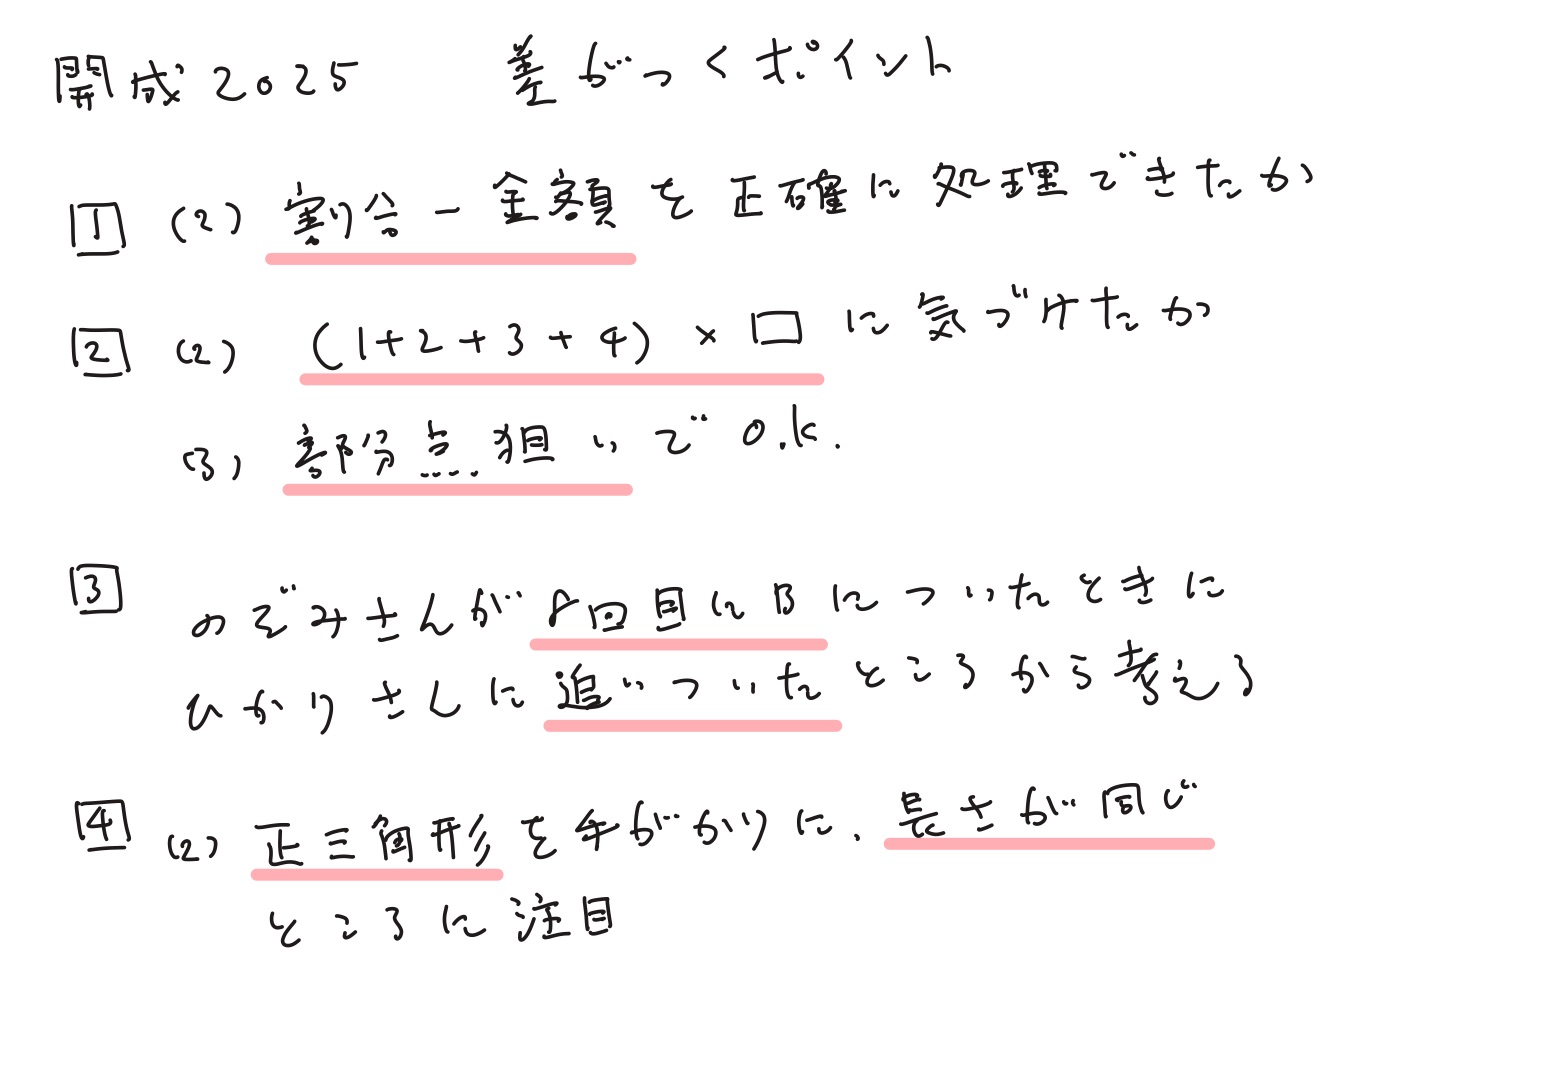 開成2025 差がつくポイント
1 (2) 割合-金額を正確に処理できたか
2 (2) (1+2+3+4)×□に気づけたか
(3) 部分点狙いでO.K.
3 のぞみさんが8回目にBについたときに
ひかりさんに追いついたところから考える
4 (2) 正三角形を手がかりに、長さが同じ
ところに注目